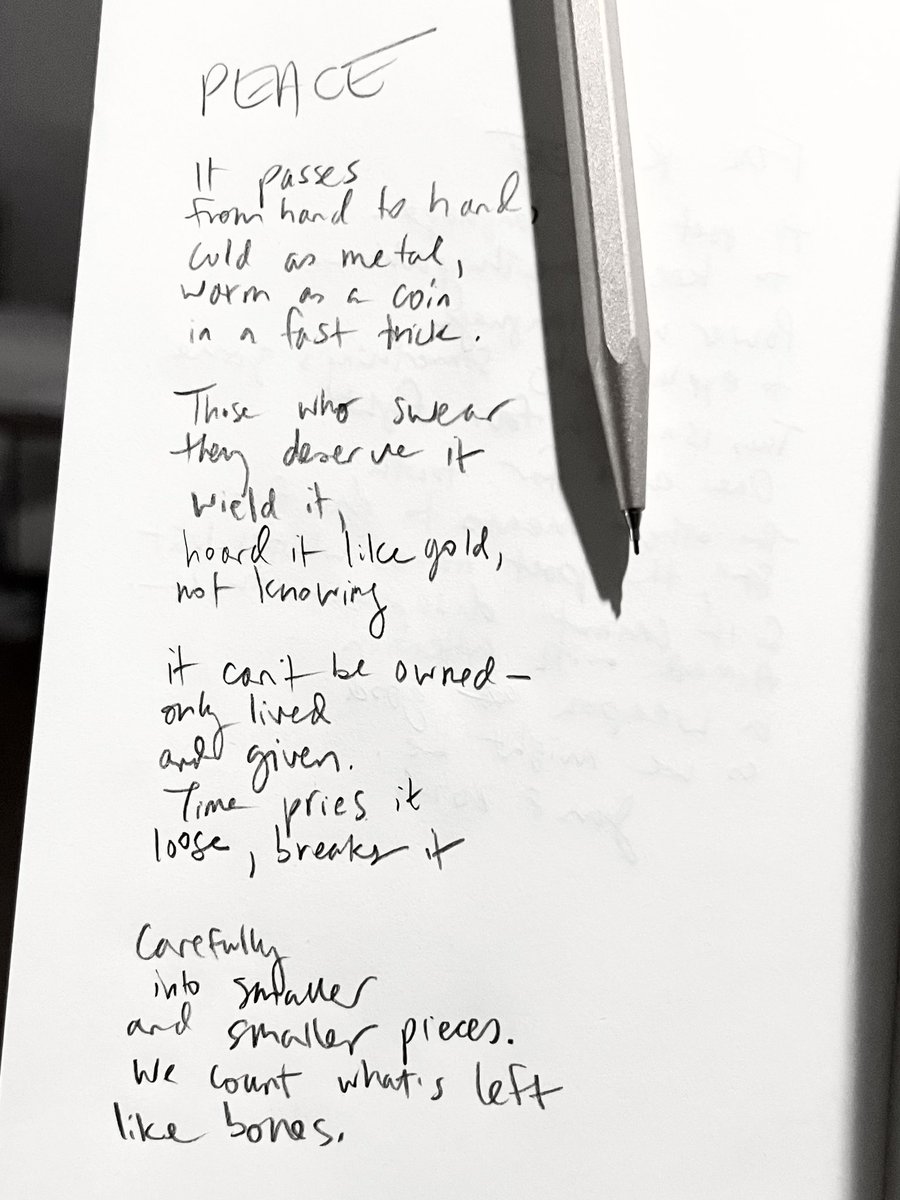 PEACE
It passes
from hand to hand,
cold as metal,
warm as a coin
in a fast trick.
Those who swear
they deserve it
wield it,
hoard it like gold,
not knowing
it can't be owned—
only lived
and given.
Time pries it
loose, breaks it
Carefully
into smaller
and smaller pieces.
We count what's left
like bones.